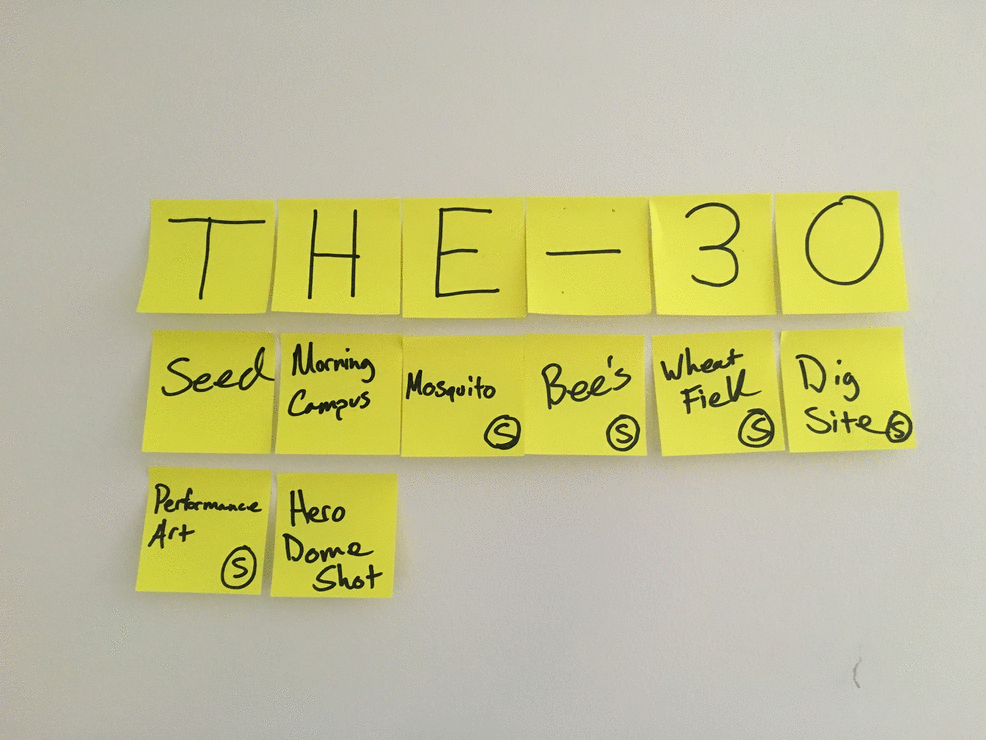 THE-30
Seed
Morning
Campus
Mosquito
S
Bee's
S
Wheat
Field
S
Dig
Site S
Performance
Art
S
Hero
Dome
Shot